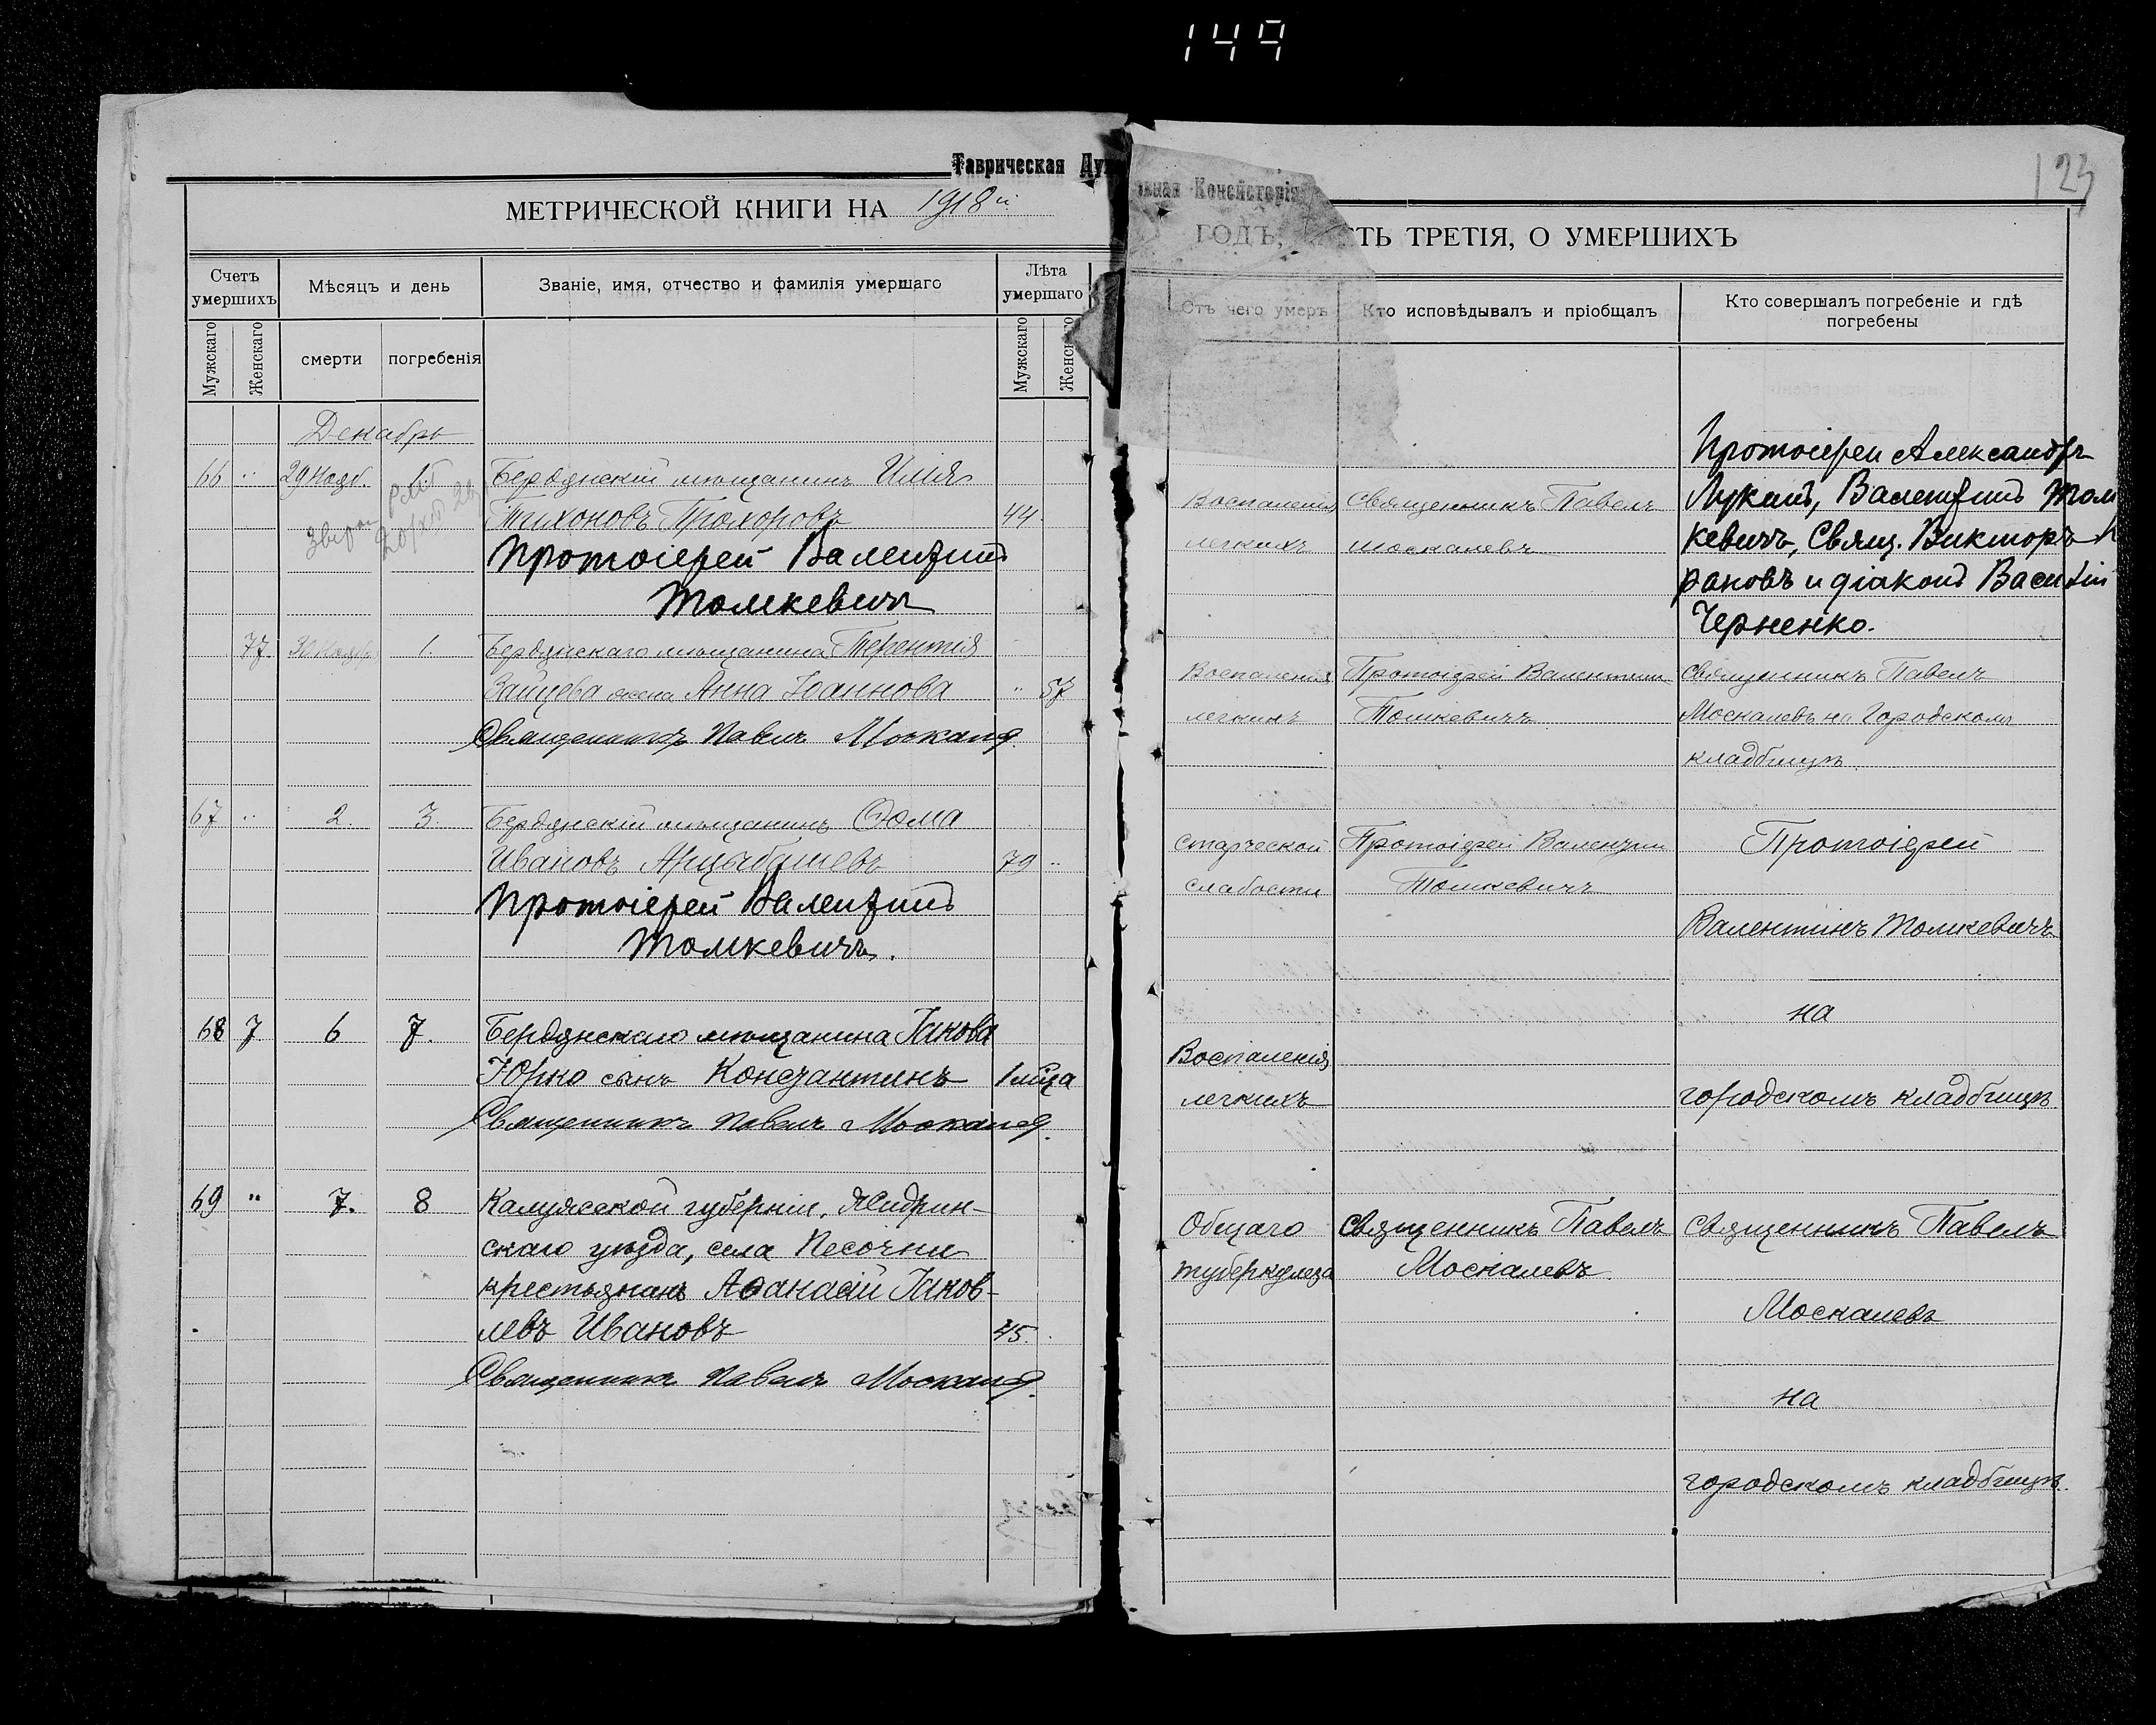 149
Таврическая Дух
овная Консисторія
123
МЕТРИЧЕСКОЙ КНИГИ НА 1918й
ГОДЪ, ЧАСТЬ ТРЕТІЯ, О УМЕРШИХЪ
Счетъ умершихъ
Мѣсяцъ и день
Званіе, имя, отчество и фамилія умершаго
Лѣта умершаго
Мужскаго
Женскаго
смерти
погребенія
Мужскаго
Женскаго
Отъ чего умеръ
Кто исповѣдывалъ и пріобщалъ
Кто совершалъ погребеніе и гдѣ погребены
Декабрь
66 " 29 Нояб. 1 Бердянскій мѣщанинъ Илія
Тихоновъ Прохоровъ 44
Протоіерей Валентинъ
Томкевичъ
Воспаленія
легкихъ
Священникъ Павелъ
Москалевъ
Протоіереи Александръ
Лукинъ, Валентинъ Том
кевичъ, Свящ. Викторъ
рановъ и діаконъ Василій
Черненко.
77. 30 Ноября 1. Бердянскаго мѣщанина Терентія
Зайцева жена Анна Іоаннова " 57
Священникъ Павелъ Москалев
Воспаленія
легкихъ
Протоіерей Валентинъ
Томкевичъ
Священникъ Павелъ
Москалевъ на Городскомъ
кладбищѣ.
67 " 2. 3. Бердянскій мѣщанинъ Ѳома
Ивановъ Арцыбашевъ 79 "
Протоіерей Валентинъ
Томкевичъ.
Старческой
слабости
Протоіерей Валентин
Томкевичъ
Протоіерей
Валентинъ Томкевичъ
на
городскомъ кладбищѣ
68 7 6 7. Бердянскаго мѣщанина Іакова
Юрко сынъ Константинъ 1 мѣца
Священникъ Павелъ Москалев.
Воспаленія
легкихъ
69 " 7. 8 Калужской губерніи, Жидрин-
скаго уѣзда, села Песочни
крестьянинъ Аѳанасій Іаков-
левъ Ивановъ 45.
Священникъ Павелъ Москалев.
Общаго
туберкулеза
Священникъ Павелъ
Москалевъ.
Священникъ Павелъ
Москалевъ
на
городскомъ кладбищѣ.